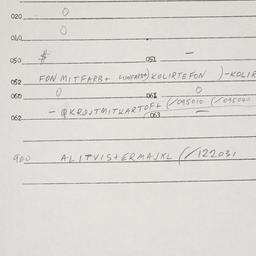 020 0
040 0
050 $ 051 -
052 FON MITFARB+ (UNFARB+) KOLIRTE FON )-KOLIR
060 0 061 0
062 - @KROJTMITKARTOFL (/095010 (/095040
063 -
900 ALITVIS+ERMAJXL (/122031